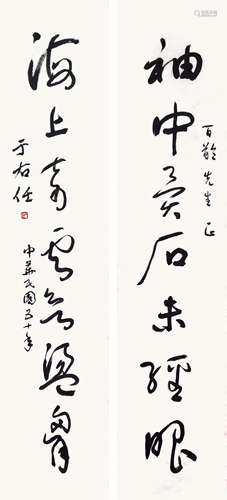 百齡先生正
袖中異石未經眼
海上奇雲欲盪胸
于右任
中華民國五十年